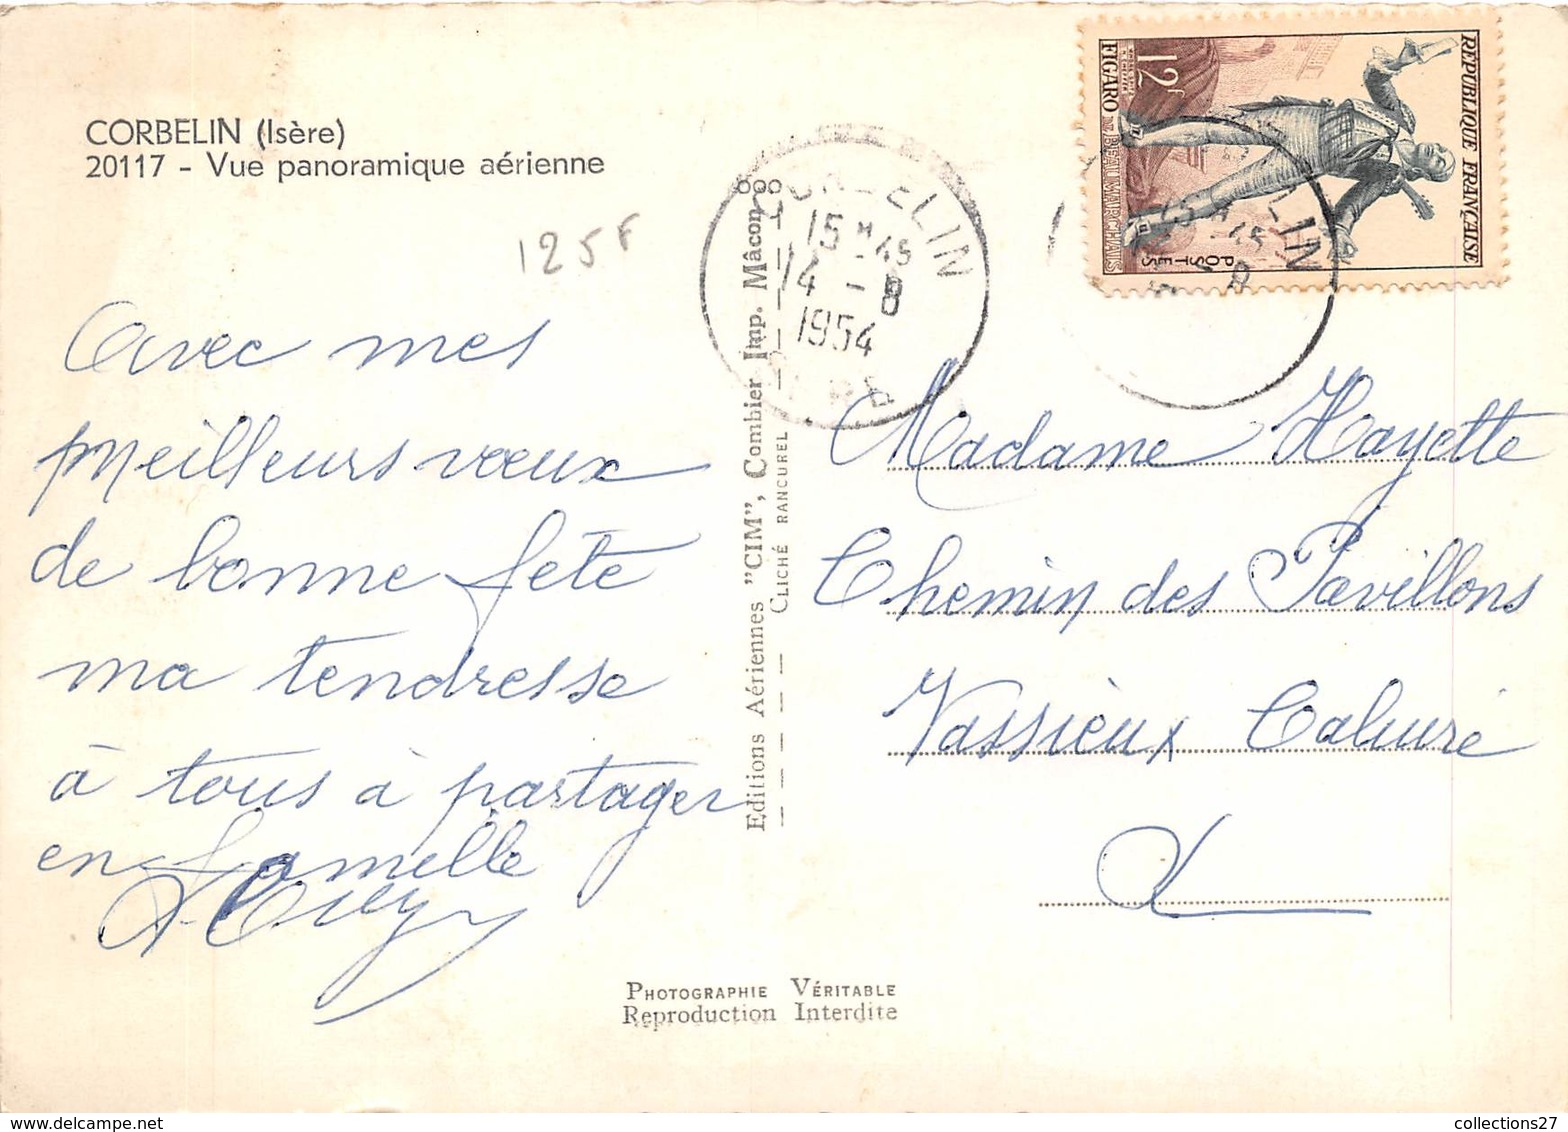 CORBELIN (Isère)
20117 - Vue panoramique aérienne
125F
Avec mes
meilleurs voeux
de bonne fête
ma tendresse
à tous à partager
en famille
Editions Aériennes "CIM", Combier Imp. Mâcon
CLICHÉ RANCUREL
15 H 45
14 - 8
1954
ISÈRE
REPUBLIQUE FRANÇAISE
POSTES
12F
FIGARO DE BEAUMARCHAIS
Madame Hayette
Chemin des Pavillons
Vassieux Caluire
PHOTOGRAPHIE VÉRITABLE
Reproduction Interdite
collections27